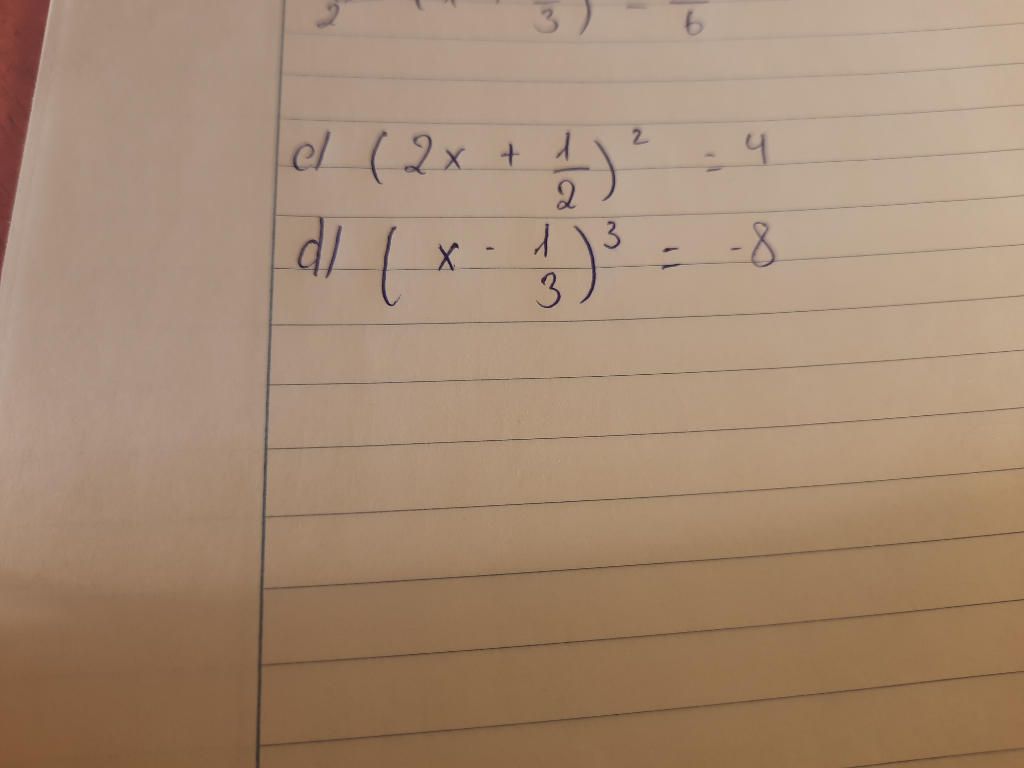 c/ (2x + 1/2)² = 4
d/ (x - 1/3)³ = -8